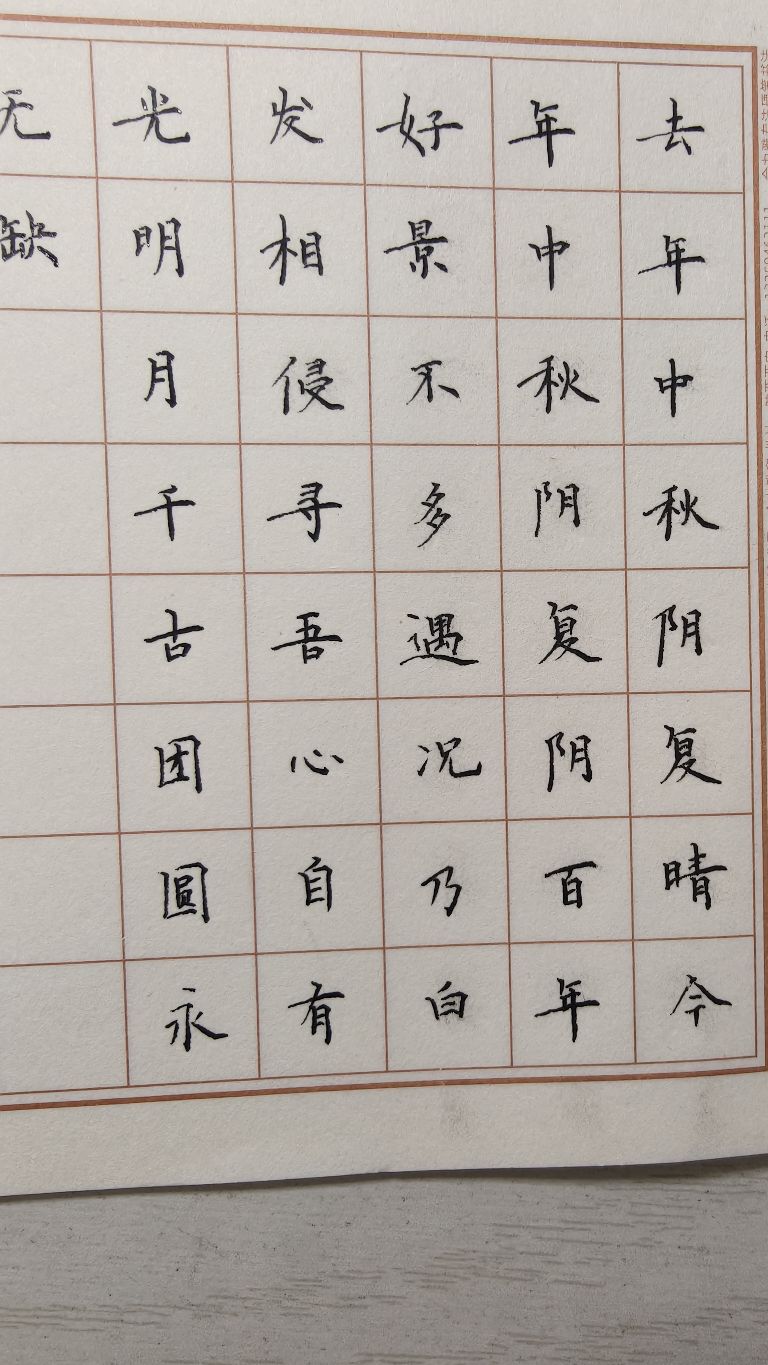 去年中秋阴复晴今
年中秋阴复阴百年
好景不多遇况乃白
发相侵寻吾心自有
光明月千古团圓永
无缺